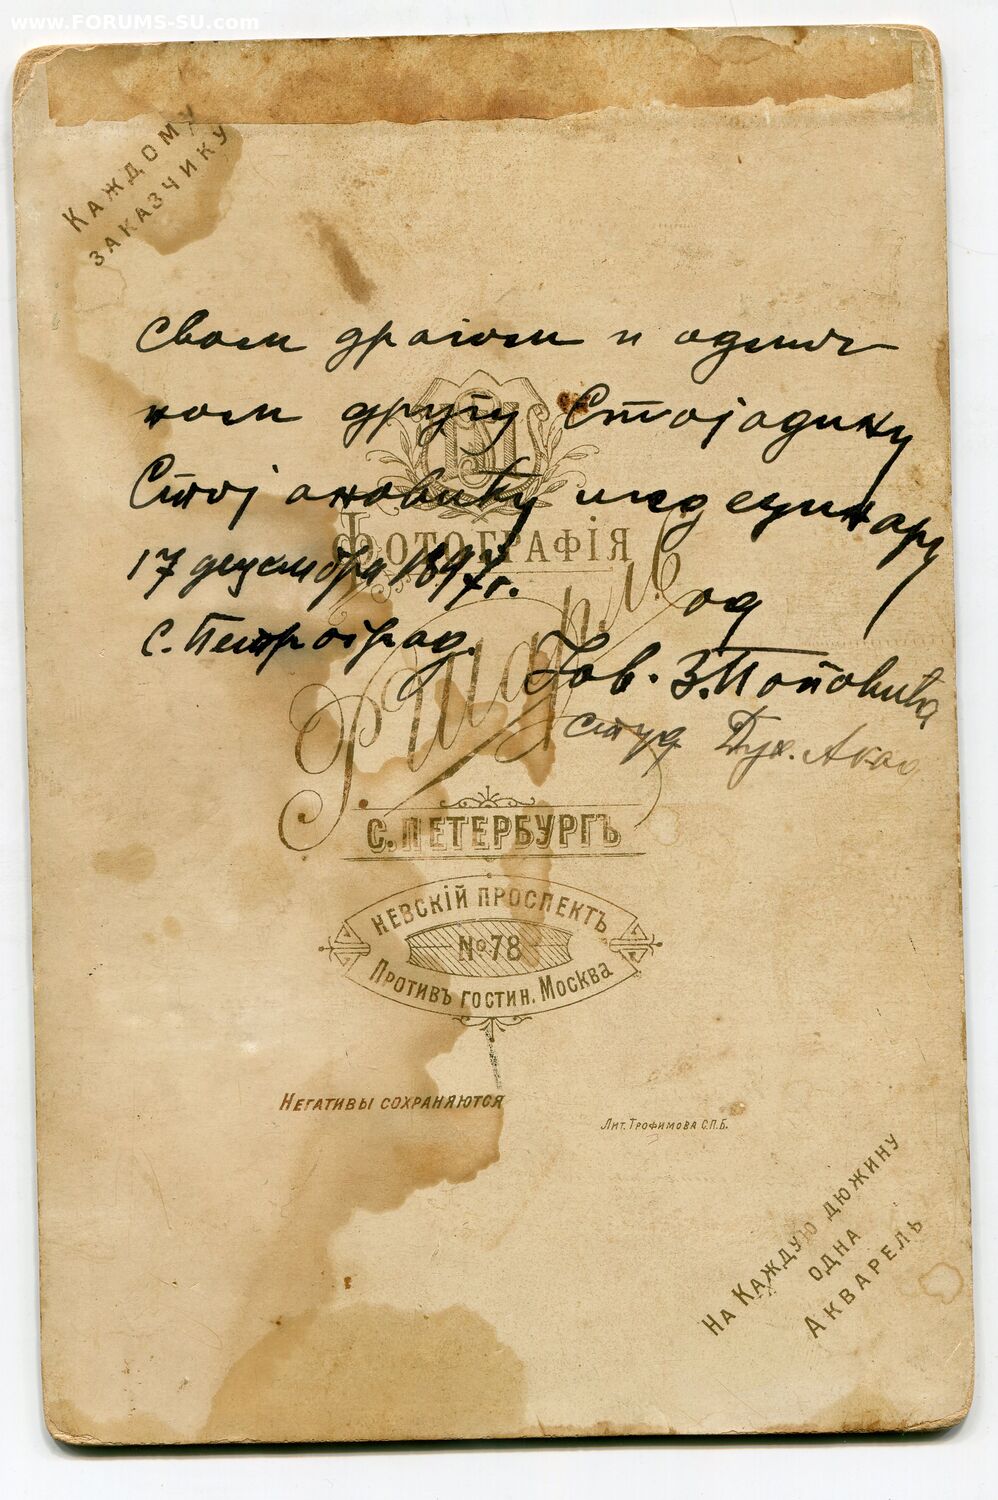 www.FORUMS-SU.com
КАЖДОМУ
ЗАКАЗЧИКУ
Свом драгом и одлич
ном другу Стојадину
Стојановићу медецинару
17 децембра 1897г.
од
С. Петроград.
Јов. З. Поповића
студ Дух. Акад
ФОТОГРАФІЯ
Р. Шарль
С. ПЕТЕРБУРГЪ
НЕВСКІЙ ПРОСПЕКТЪ
№ 78
ПРОТИВЪ ГОСТИН. МОСКВА
НЕГАТИВЫ СОХРАНЯЮТСЯ
ЛИТ. ТРОФИМОВА С.П.Б.
НА КАЖДУЮ ДЮЖИНУ
ОДНА
АКВАРЕЛЬ